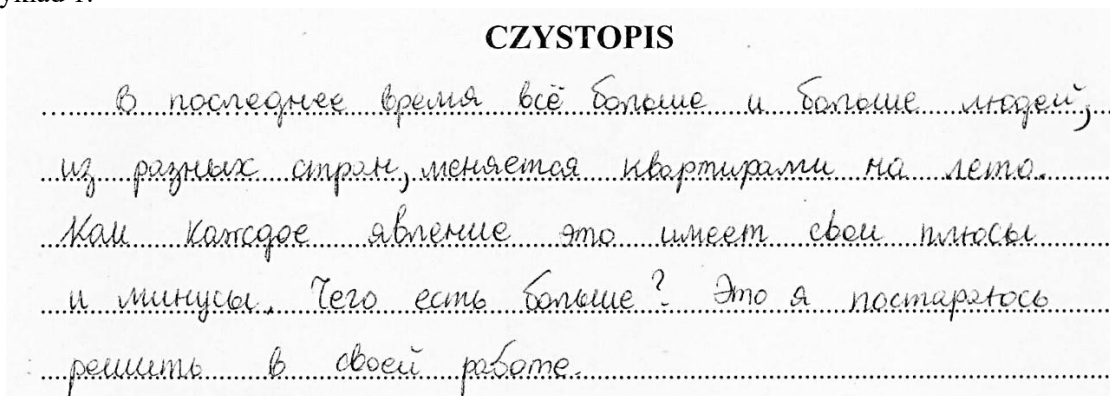 yкład 1.
CZYSTOPIS
В последнее время всё больше и больше людей,
из разных стран, меняется квартирами на лето.
Как каждое явление это имеет свои плюсы
и минусы. Чего есть больше? Это я постараюсь
решить в своей работе.